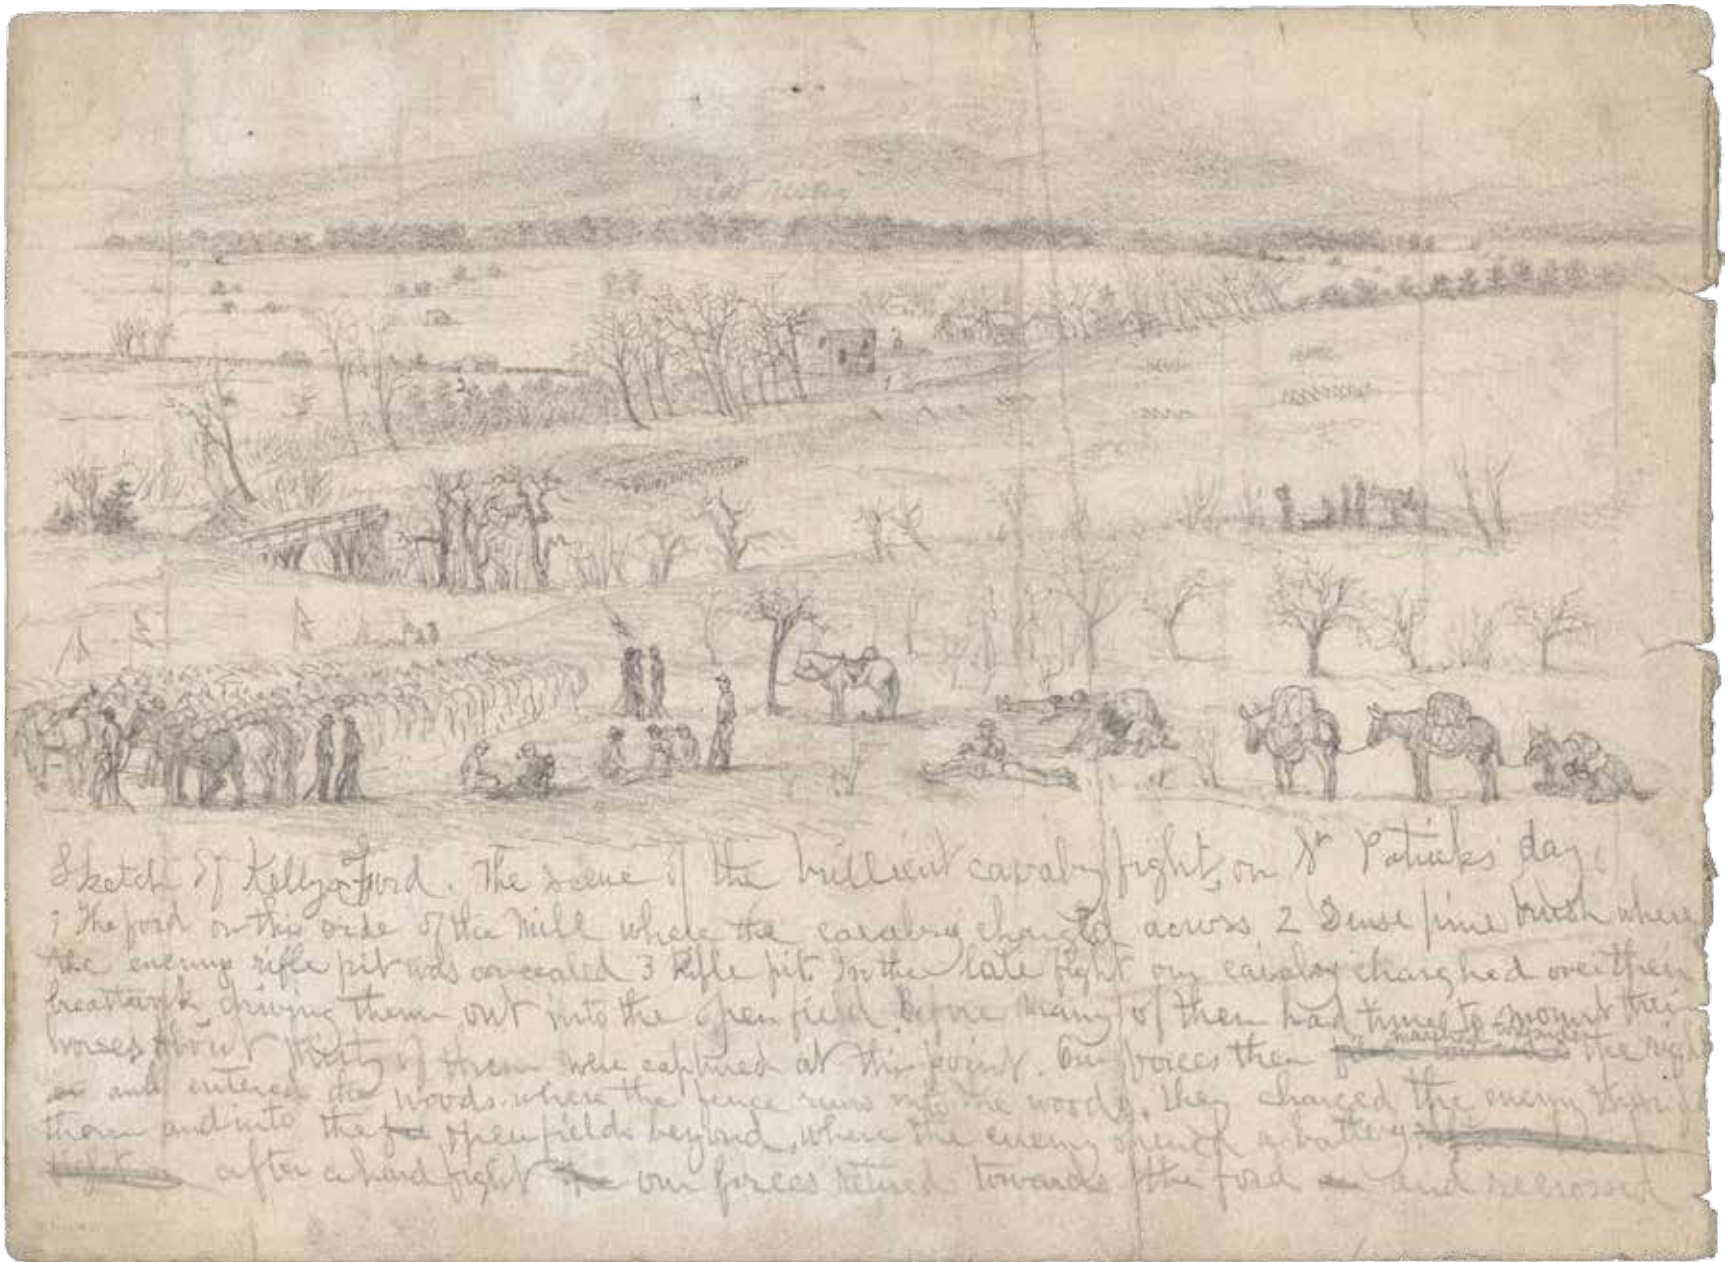 Sketch of Kellys Ford. The scene of the brillient cavalry fight, on St Patricks day.
1 The ford on this side of the Mill where the cavalry charged across 2 Dense pine brush where
the enemy rifle pit was concealed 3 Rifle pit. In the late fight our cavalry charghed over their
breastwork driving them out into the open field. Before many of them had time to mount their
horses about thirty of them were captured at this point. Our forces then marched the right
and entered the woods where the fence runs into the woods. they charged the enemy through
them and into the open fields beyond, where the enemy opened a battery
after a hard fight our forces retired towards the ford and recrossed